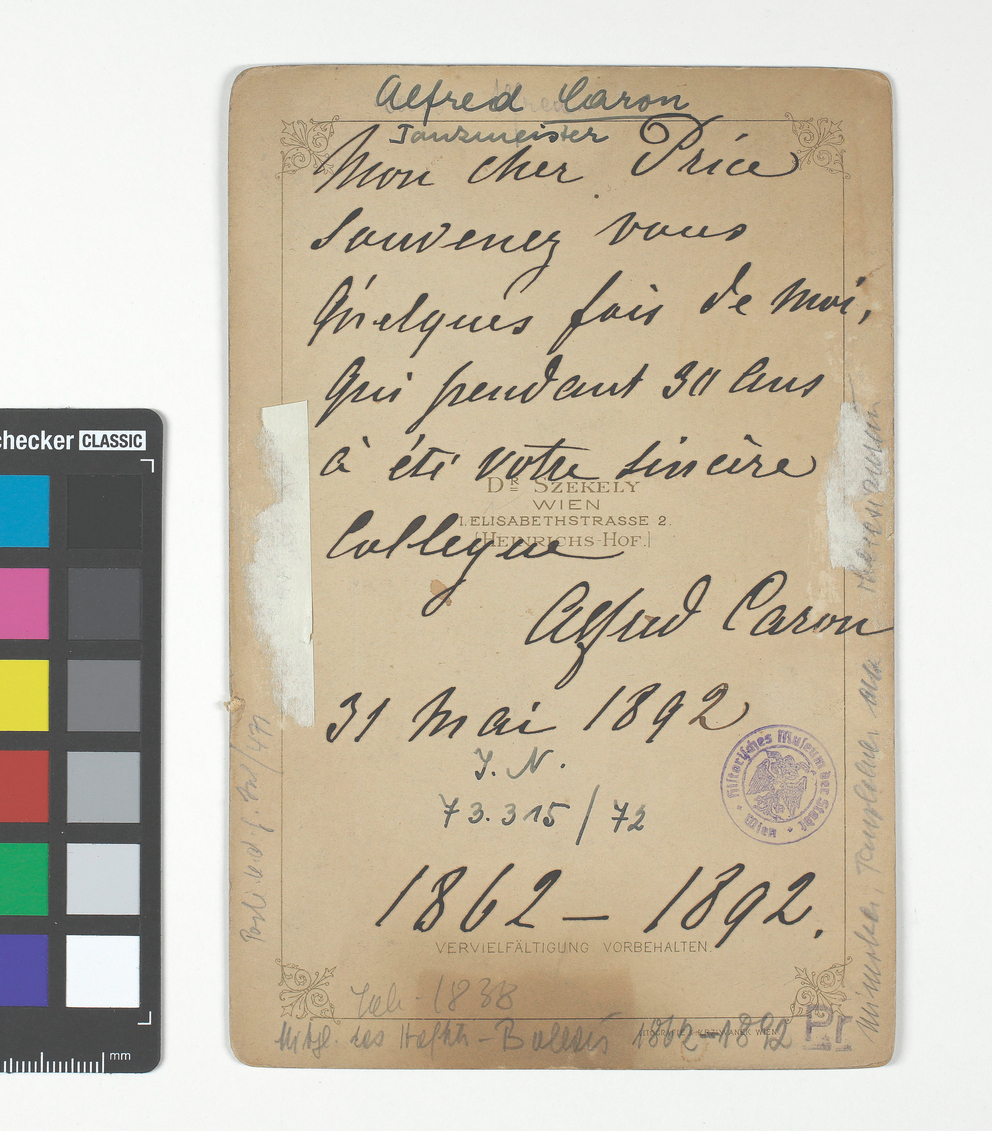 Alfred Caron
Tanzmeister
Mon cher Price
Souvenez vous
Quelques fois de Moi,
Qui pendant 30 Ans
à été votre sincère
Collegue
Alfred Caron
31 Mai 1892
DR SZEKELY
WIEN
I. ELISABETHSTRASSE 2.
[HEINRICHS-HOF.]
J. N.
73.315/72
Historisches Museum der Stadt Wien
1862 – 1892.
VERVIELFÄLTIGUNG VORBEHALTEN.
1838
Mitgl. des Hofth-Balletts 1862–1892
Pr
Mimiker, Tanzlehrer am Theresianum
checker CLASSIC
mm